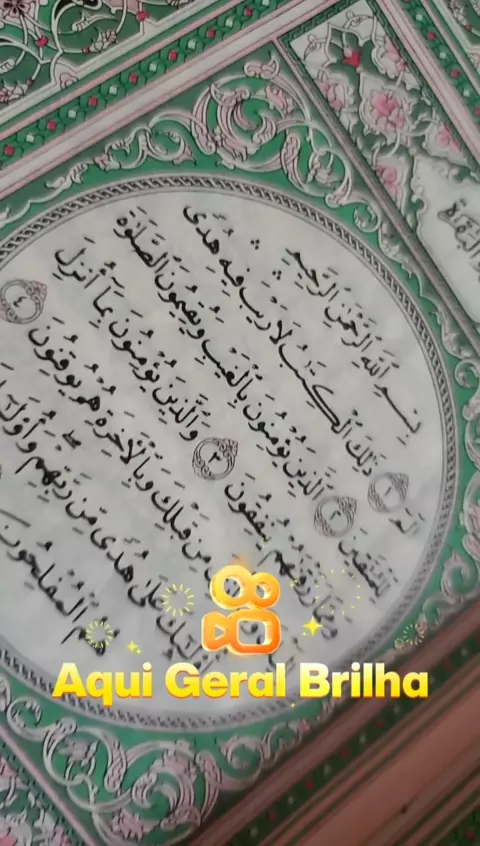 البقرة
بِسْمِ اللَّهِ الرَّحْمَٰنِ الرَّحِيمِ
الم ١ ذَٰلِكَ الْكِتَابُ لَا رَيْبَ فِيهِ هُدًى
لِّلْمُتَّقِينَ ٢ الَّذِينَ يُؤْمِنُونَ بِالْغَيْبِ وَيُقِيمُونَ الصَّلَاةَ
وَمِمَّا رَزَقْنَاهُمْ يُنفِقُونَ ٣ وَالَّذِينَ يُؤْمِنُونَ بِمَا أُنزِلَ
مِن قَبْلِكَ وَبِالْآخِرَةِ هُمْ يُوقِنُونَ ٤
عَلَىٰ هُدًى مِّن رَّبِّهِمْ وَأُولَٰئِكَ
الْمُفْلِحُونَ
Aqui Geral Brilha